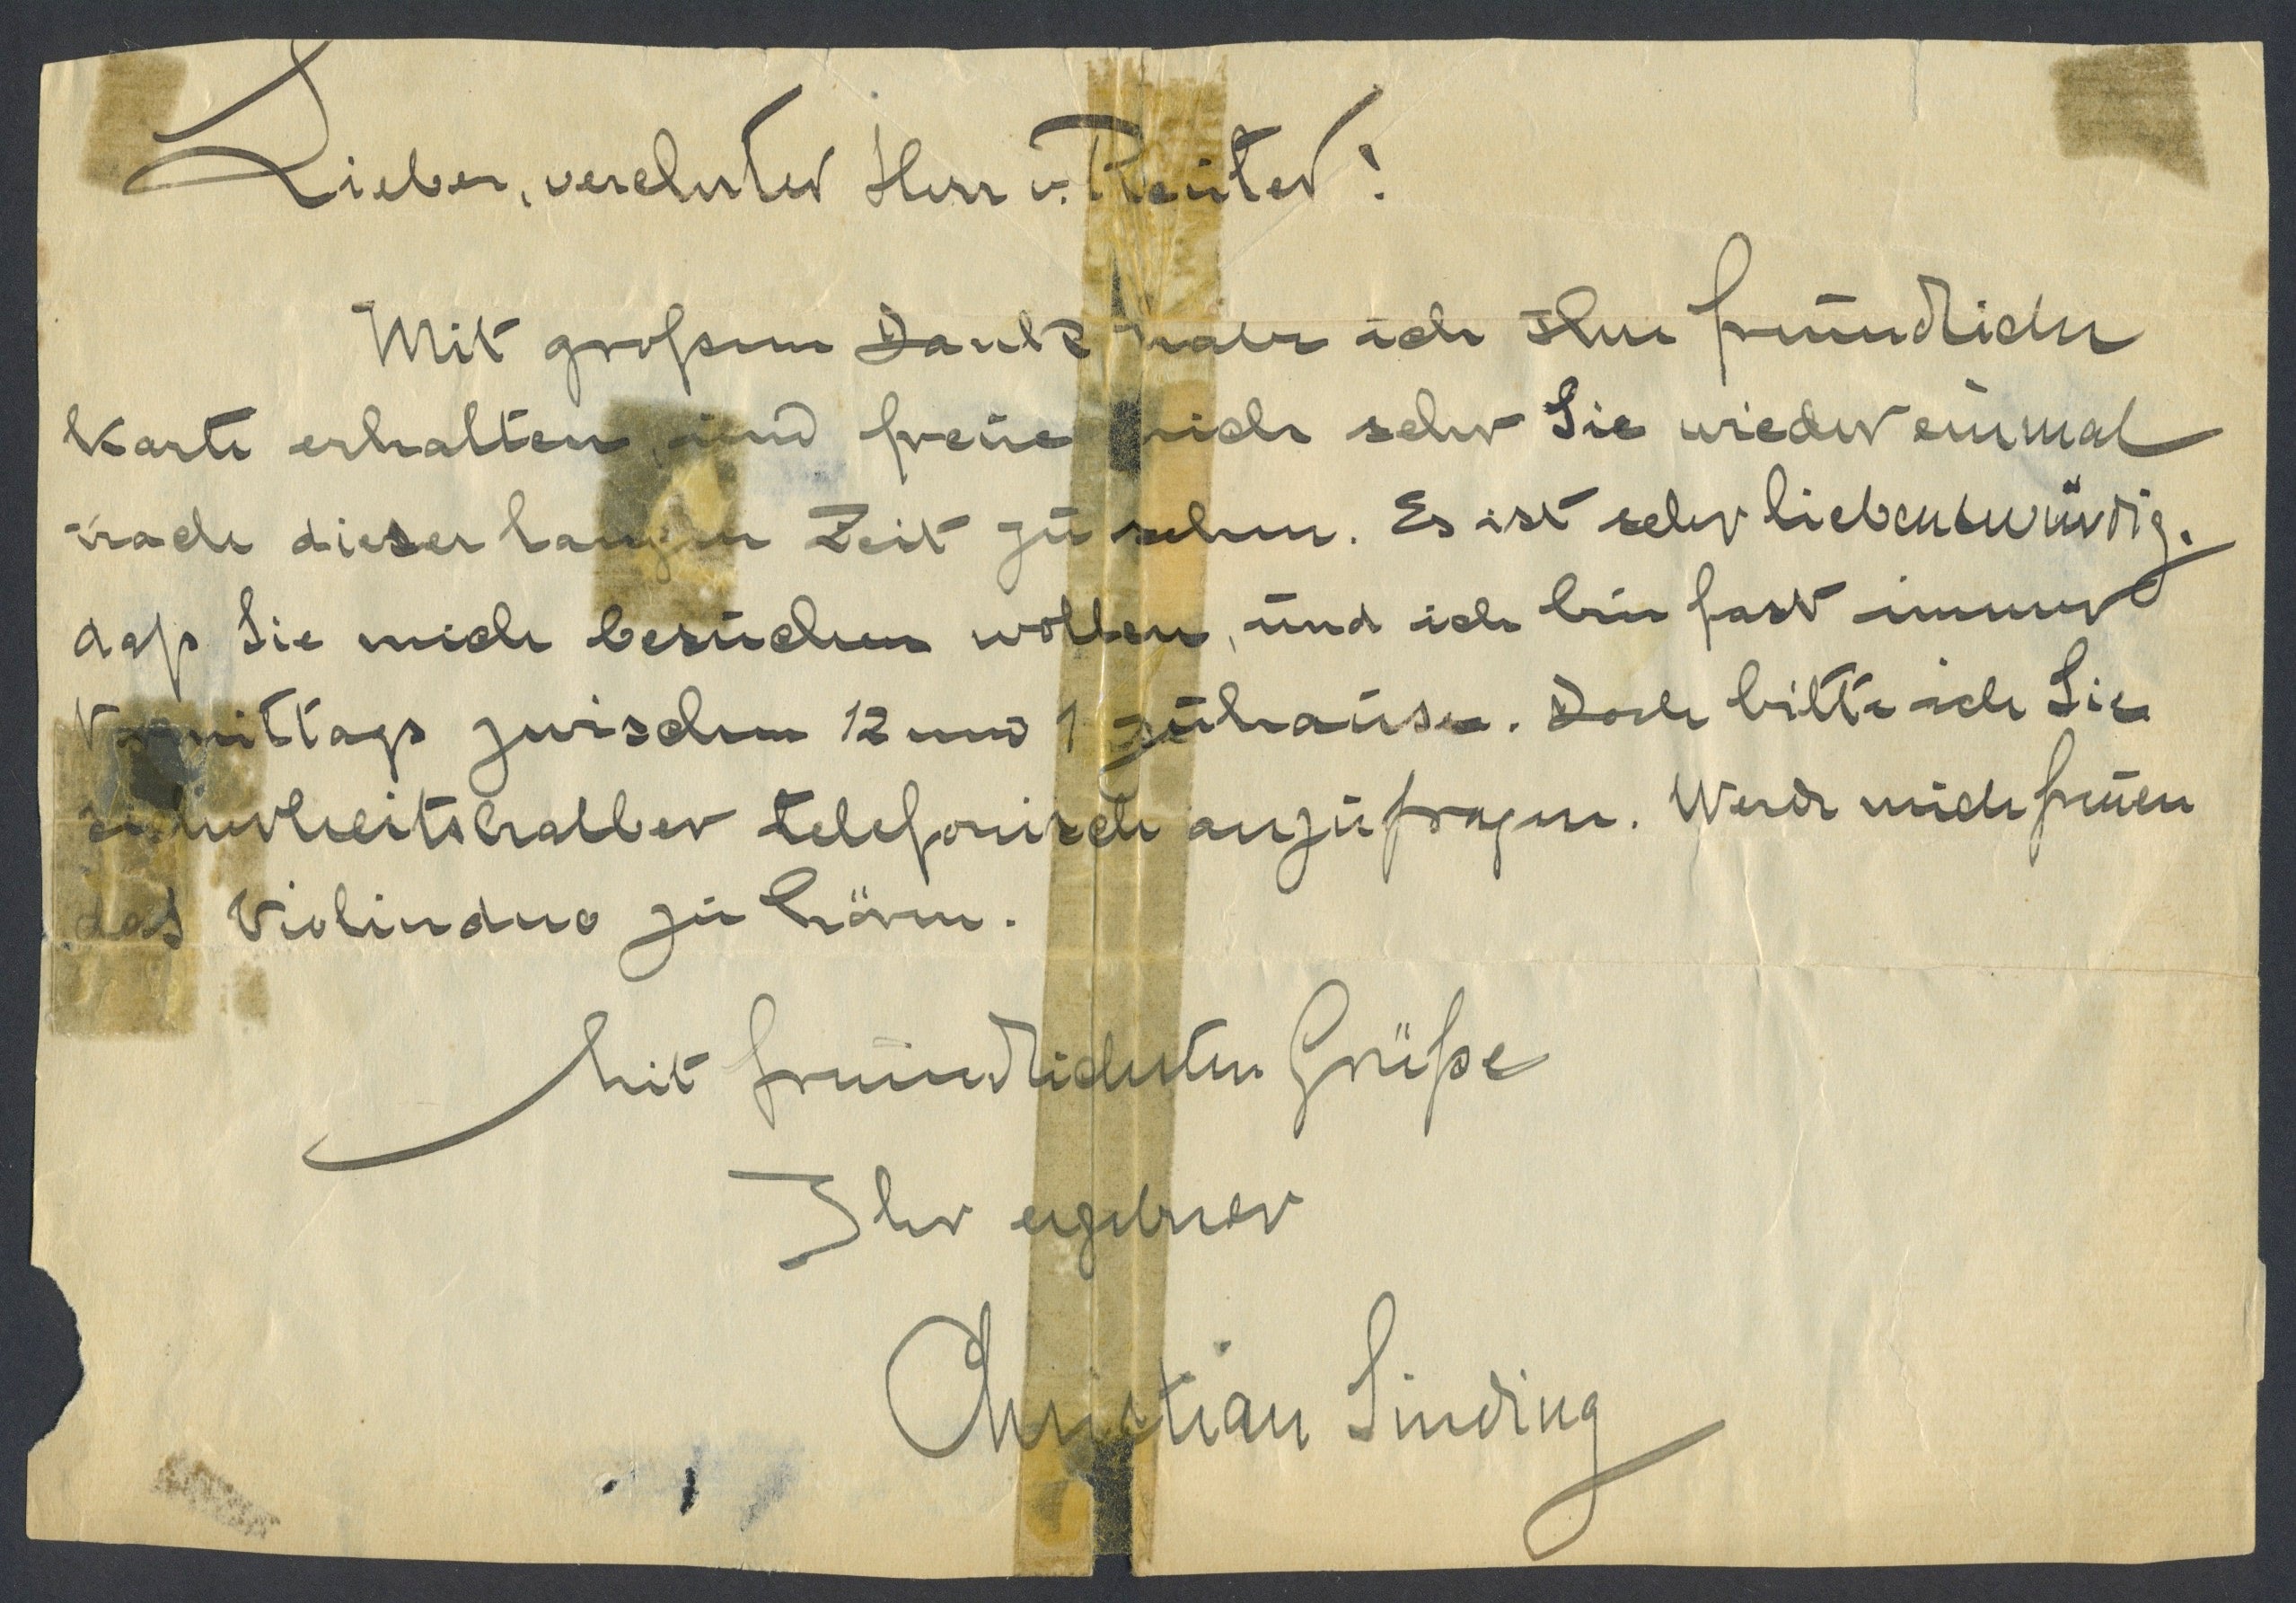 Lieber, verehrter Herr v. Reuter!
Mit großem Dank habe ich Ihre freundliche
Karte erhalten, und freue mich sehr Sie wieder einmal
nach dieser langen Zeit zu sehen. Es ist sehr liebenswürdig,
daß Sie mich besuchen wollen, und ich bin fast immer
Vormittags zwischen 12 und 1 zuhause. Doch bitte ich Sie
sicherheitshalber telefonisch anzufragen. Werde mich freuen
das Violinduo zu hören.
Mit freundlichsten Grüße
Ihr ergebener
Christian Sinding